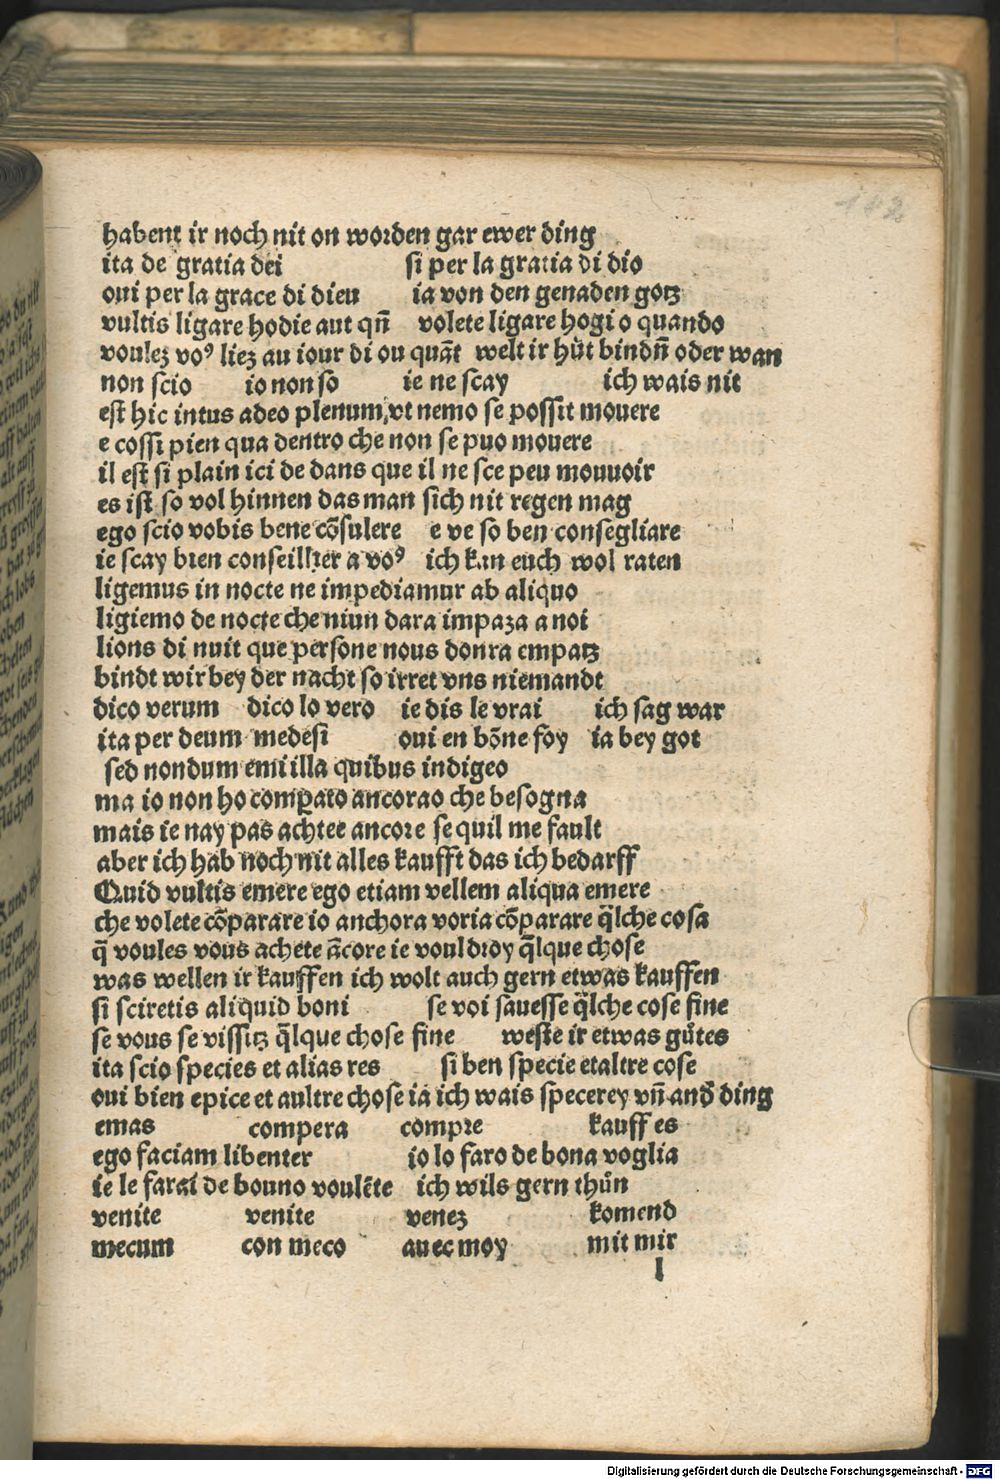 142
habent ir noch nit on worden gar ewer ding
ita de gratia dei si per la gratia di dio
oui per la grace di dieu ia von den genaden gotz
vultis ligare hodie aut qn̄ volete ligare hogi o quando
voulez voꝰ liez au iour di ou quãt welt ir hüt bindn̄ oder wan
non scio io non so ie ne scay ich wais nit
est hic intus adeo plenum, vt nemo se possit mouere
e cossi pien qua dentro che non se puo mouere
il est si plain ici de dans que il ne sce peu mouuoir
es ist so vol hinnen das man sich nit regen mag
ego scio vobis bene cōsulere e ve so ben consegliare
ie scay bien conseillier a voꝰ ich kan euch wol raten
ligemus in nocte ne impediamur ab aliquo
ligiemo de nocte che niun dara impaza a noi
lions di nuit que persone nous donra empatz
bindt wir bey der nacht so irret vns niemandt
dico verum dico lo vero ie dis le vrai ich sag war
ita per deum medesi oui en bōne foy ia bey got
sed nondum emi illa quibus indigeo
ma io non ho comꝑato ancorao che besogna
mais ie nay pas achtee ancore se quil me fault
aber ich hab noch nit alles kaufft das ich bedarff
Quid vultis emere ego etiam vellem aliqua emere
che volete cōparare io anchora voria cōparare q̄lche cosa
q̄ voules vous achete ācore ie vouldroy q̄lque chose
was wellen ir kauffen ich wolt auch gern etwas kauffen
si sciretis aliquid boni se voi sauesse q̄lche cose fine
se vous se vissitz q̄lque chose fine weste ir etwas gůtes
ita scio species et alias res si ben specie etaltre cose
oui bien epice et aultre chose ia ich wais specerey vn̄ and̄ ding
emas compera compre kauff es
ego faciam libenter io lo faro de bona voglia
ie le farai de bouno voulēte ich wils gern thůn
venite venite venez komend
mecum con meco auec moy mit mir
l
Digitalisierung gefördert durch die Deutsche Forschungsgemeinschaft - DFG